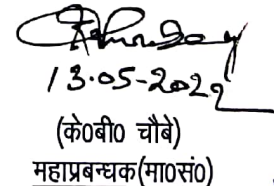 13.05-2022
(के0बी0 चौबे)
महाप्रबन्धक(मा0सं0)